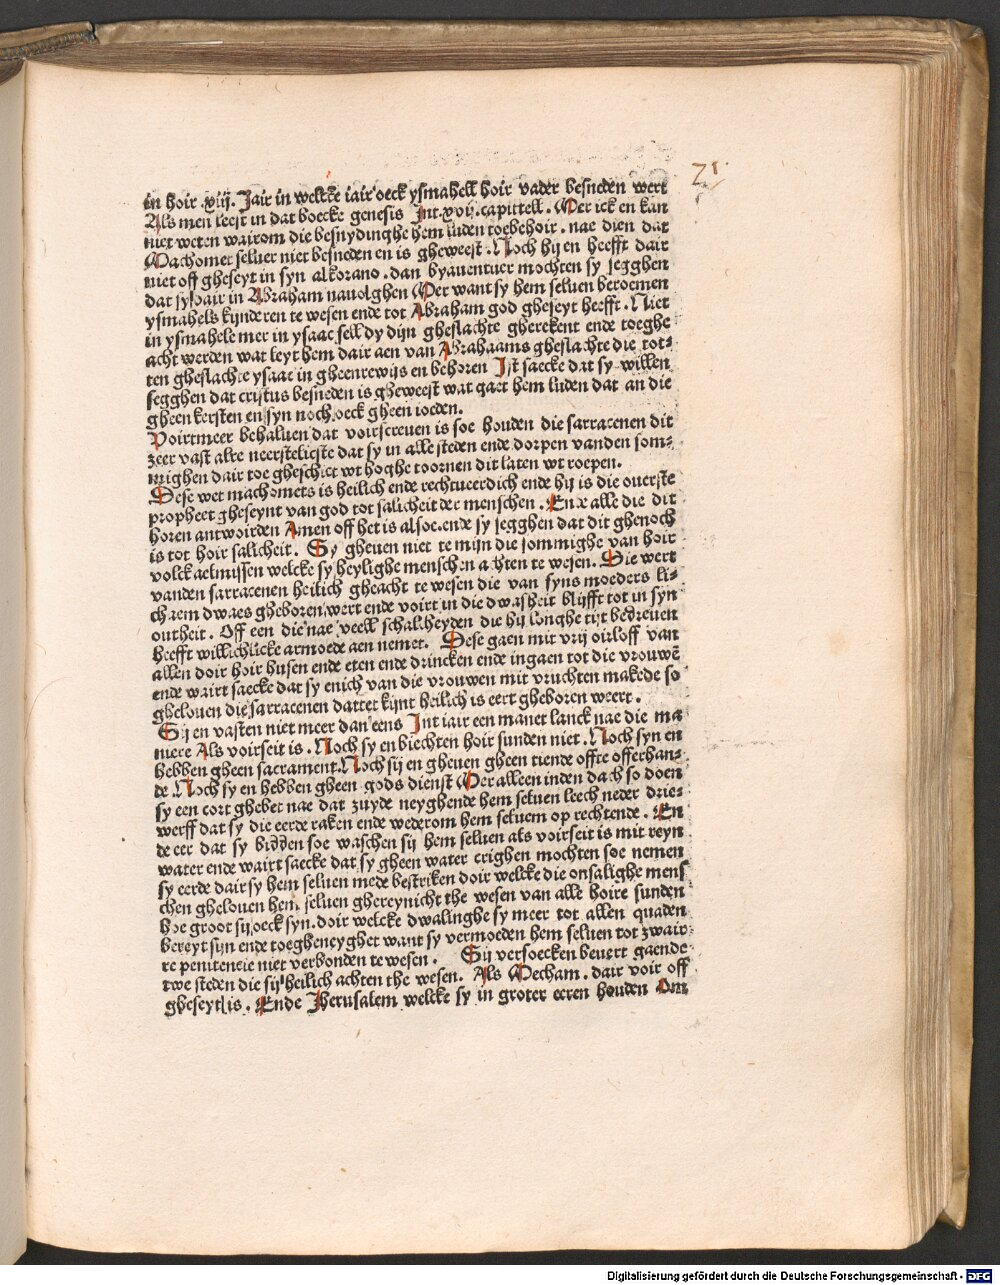 21
in hoir .xiij. Jair in welcke iair oeck ysmahell hoir vader besneden wert
Als men leest in dat boecke genesis Int .xvij. capittell. Mer ick en kan
niet weten wairom die besnydinghe hem luden toebehoir . nae dien dat
Machomet seluer niet besneden en is gheweest . Noch hij en heefft dair
niet off gheseyt in syn alkorano . dan byauentuer mochten sy segghen
dat sy dair in Abraham nauolghen Mer want sy hem seluen beroemen
ysmahels kijnderen te wesen ende tot Abraham god gheseyt heefft . Niet
in ysmahele mer in ysaac sell dy dijn gheslachte gherekent ende toeghe
acht werden wat leyt hem dair aen van Abrahaams gheslachte die tot-
ten gheslachte ysaac in gheenrewijs en behoren Ist saecke dat sy willen
segghen dat cristus besneden is gheweest wat gaet hem luden dat an die
gheen kersten en syn noch oeck gheen ioeden.
Voirtmeer behaluen dat voirscreuen is soe houden die sarracenen dit
zeer vast alre neerstelicste dat sy in alle steden ende dorpen vanden som-
mighen dair toe gheschict wt hoghe toornen dit laten wt roepen.
Dese wet machomets is heilich ende rechtuerdich ende hij is die ouerste
propheet gheseynt van god tot salicheit der menschen . Ende alle die dit
horen antwoirden Amen off het is alsoe. ende sy segghen dat dit ghenoch
is tot hoir salicheit . Sy gheuen niet te mijn die sommighe van hoir
volck aelmissen welcke sy heylighe menschen achten te wesen. Die wert
vanden sarracenen heilich gheacht te wesen die van syns moeders li-
chaem dwaes gheboren wert ende voirt in die dwasheit blijfft tot in syn
outheit . Off een die nae veell schalcheyden die hij longhe tijt bedreuen
heefft willichlicke armoede aen nemet. Dese gaen mit vrij oirloff van
allen doir hoir husen ende eten ende drincken ende ingaen tot die vrouwē
ende wairt saecke dat sy enich van die vrouwen mit vruchten makede so
ghelouen die sarracenen dattet kijnt heilich is eert gheboren weert .
Sij en vasten niet meer dan eens Int iair een manet lanck nae die ma
niere Als voirseit is . Noch sy en biechten hoir sunden niet . Noch syn en
hebben gheen sacrament. Noch sij en gheuen gheen tiende offte offerhan-
de Noch sy en hebben gheen gods dienst Mer alleen inden dach so doen
sy een cort ghebet nae dat zuyde neyghende hem seluen leech neder drie-
werff dat sy die eerde raken ende wederom hem seluem op rechtende . En
de eer dat sy bidden soe waschen sij hem seluen als voirseit is mit reyn
water ende wairt saecke dat sy gheen water crighen mochten soe nemen
sy eerde dair sy hem seluen mede bestriken doir welcke die onsalighe mens
chen ghelouen hem seluen ghereynicht the wesen van alle hoire sunden
hoe groot sij oeck syn. doir welcke dwalinghe sy meer tot allen quaden
bereyt sijn ende toegheneyghet want sy vermoeden hem seluen tot zwair
re penitencie niet verbonden te wesen . Sij versoecken beuert gaende
twe steden die sij heilich achten the wesen. Als Mecham . dair voir off
gheseyt is . Ende Jherusalem welcke sy in groter eeren houden Om
Digitalisierung gefördert durch die Deutsche Forschungsgemeinschaft - DFG